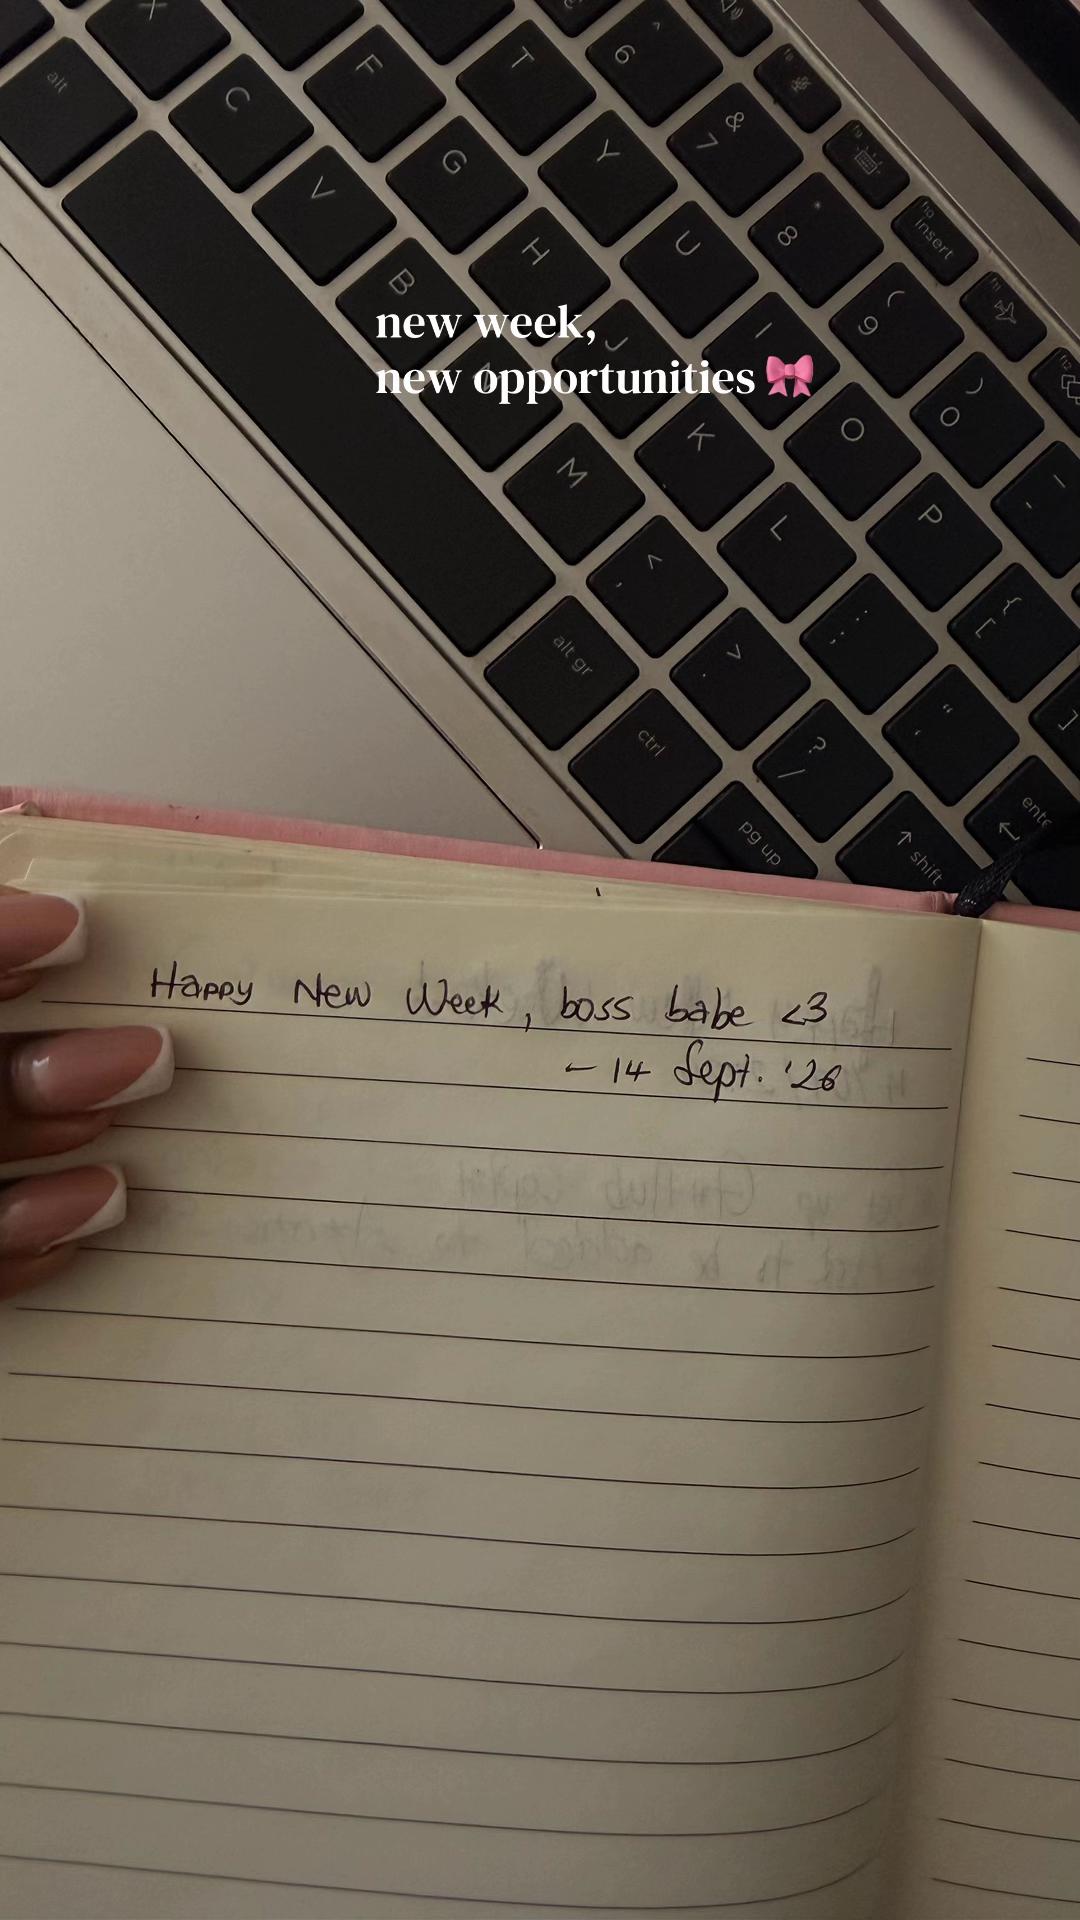 alt
X
C
F
T
6 ^
V
G
Y
& 7
B
H
U
* 8
f9
f10 insert
f11
f12
new week,
J
I
( 9
new opportunities 🎀
M
K
O
) 0
< ,
L
P
alt gr
> .
: ;
{ [
ctrl
? /
" '
]
pg up
↑ shift
Happy New Week, boss babe <3
– 14 Sept. '26